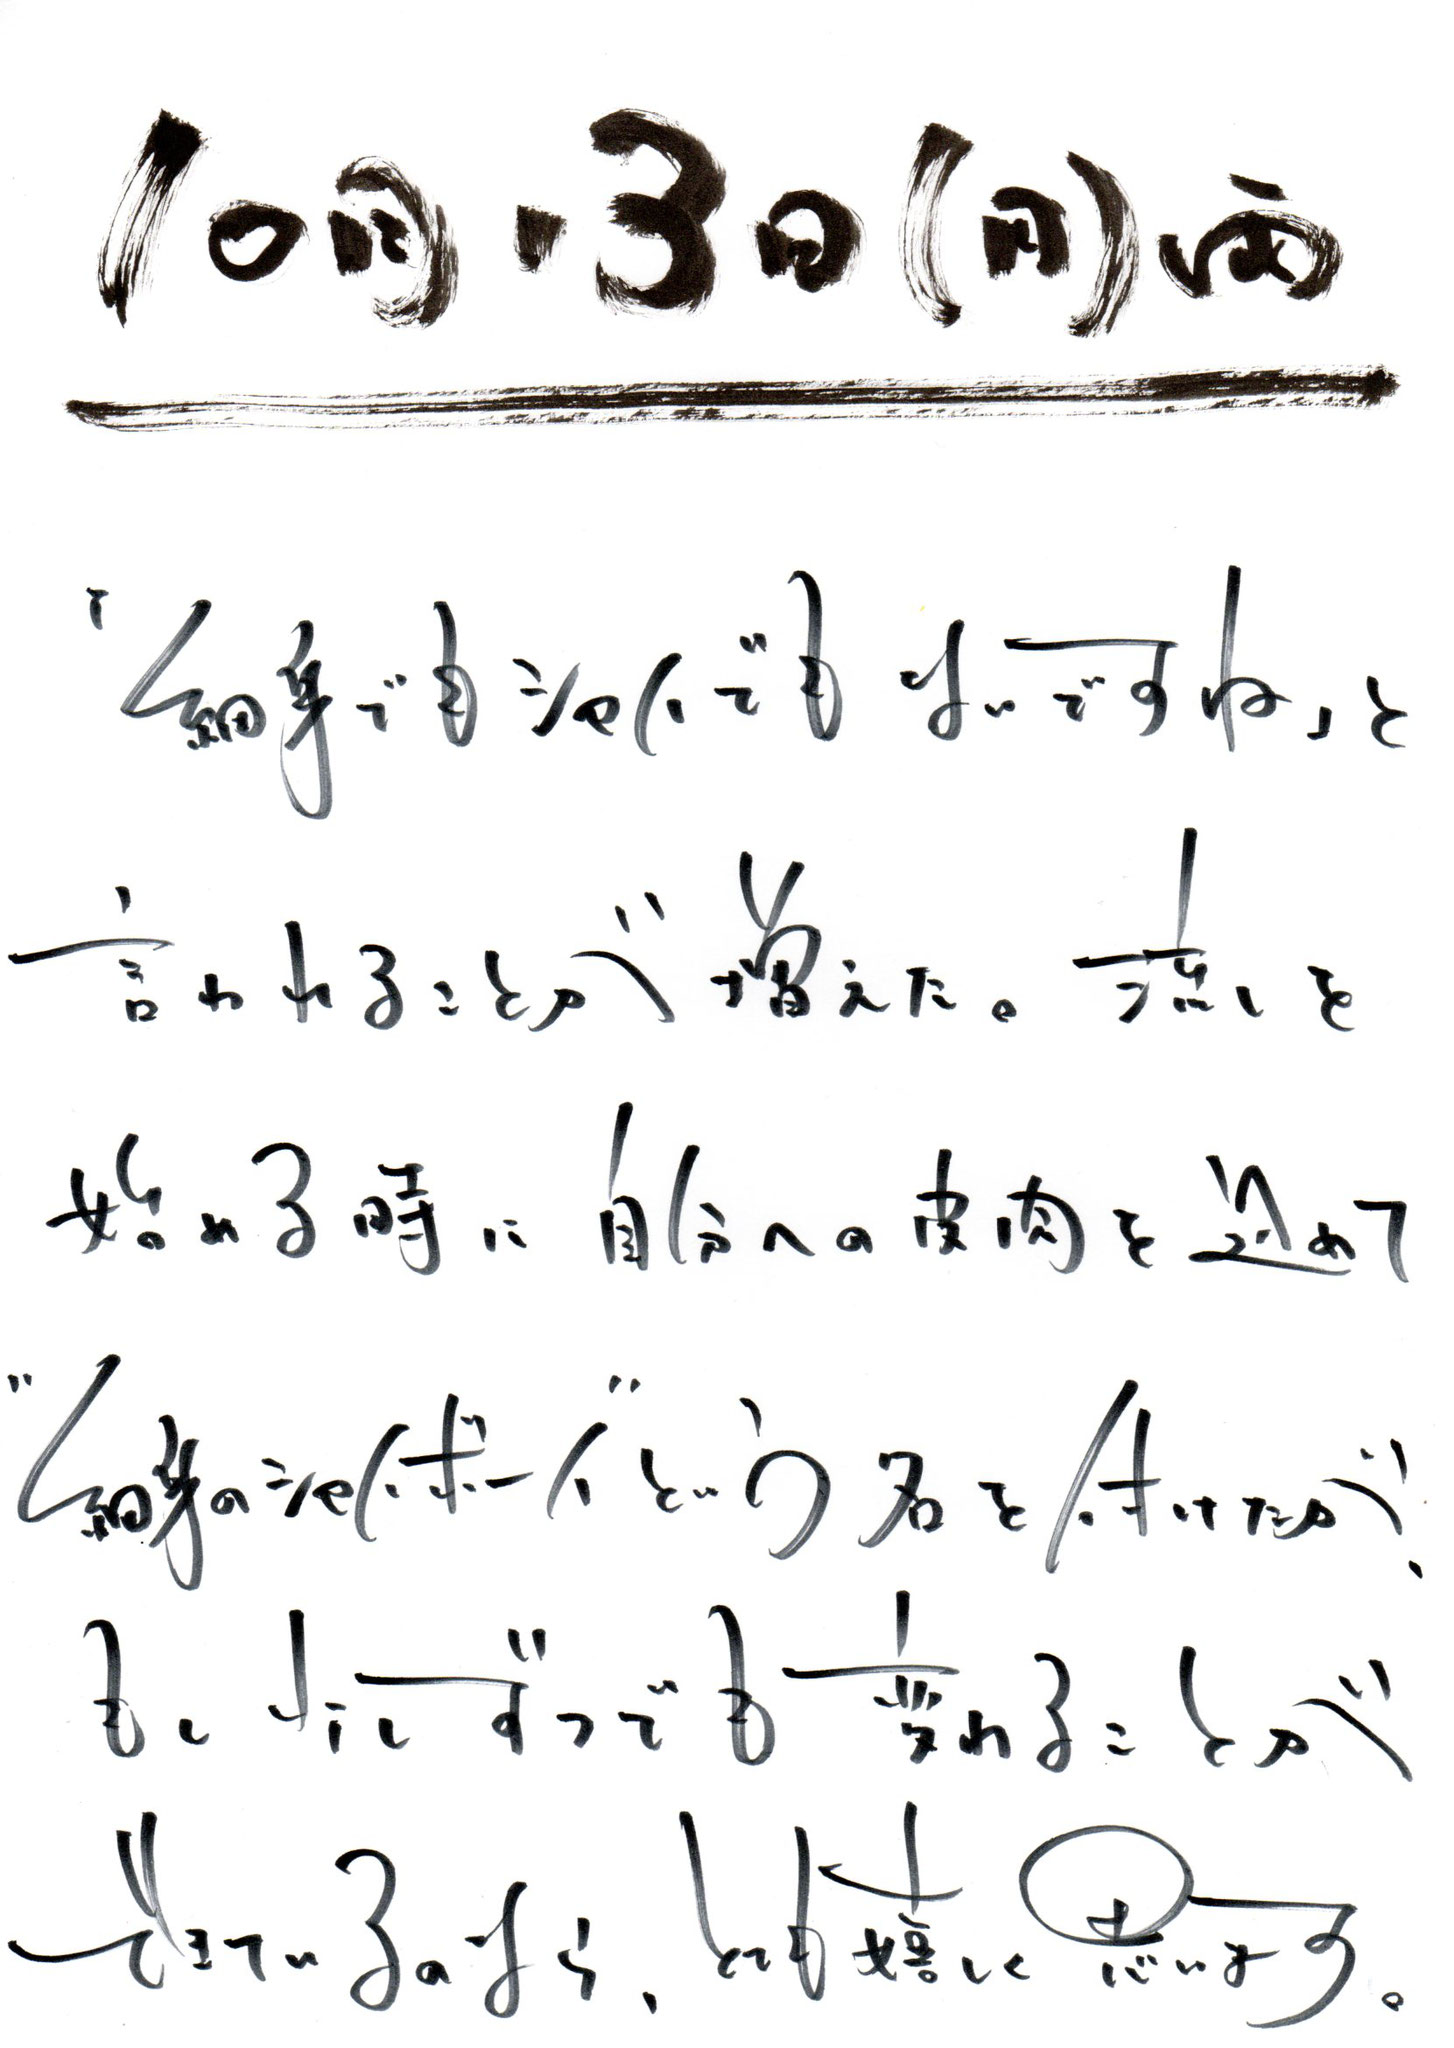 10月・3日(月)雨
「細身でもシャイでもないですね」と
言われることが増えた。流しを
始める時に自分への皮肉を込めて
"細身のシャイボーイ"という名を付けたが、
もし少しずつでも変われることが
できているのなら、とても嬉しく思います。